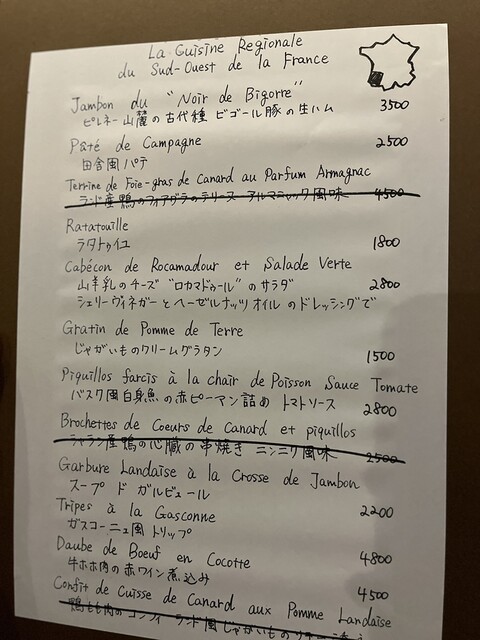 La Cuisine Regionale
du Sud-Ouest de la France
Jambon du "Noir de Bigorre"
ピレネー山麓の古代種 ビゴール豚の生ハム 3500
Pâté de Campagne
田舎風パテ 2500
Terrine de Foie-gras de Canard au Parfum Armagnac
ランド産鴨のフォアグラのテリーヌ アルマニャック風味 4500
Ratatouille
ラタトゥイユ 1800
Cabécon de Rocamadour et Salade Verte
山羊乳のチーズ "ロカマドゥール"のサラダ 2800
シェリーヴィネガーとヘーゼルナッツオイルのドレッシングで
Gratin de Pomme de Terre
じゃがいものクリームグラタン 1500
Piquillos farcis à la chair de Poisson Sauce Tomate
バスク風白身魚の赤ピーマン詰め トマトソース 2800
Brochettes de Coeurs de Canard et piquillos
産鴨の心臓の串焼き ニンニク風味 2500
Garbure Landaise à la Crosse de Jambon
スープ ド ガルビュール 2200
Tripes à la Gasconne
ガスコーニュ風 トリップ 4800
Daube de Boeuf en Cocotte
牛ホホ肉の赤ワイン煮込み 4500
Confit de Cuisse de Canard aux Pomme Landaise
鴨もも肉のコンフィ ランド風じゃがいも